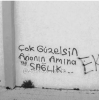 Çok Güzelsin
Ananın Amına
SAĞLIK...